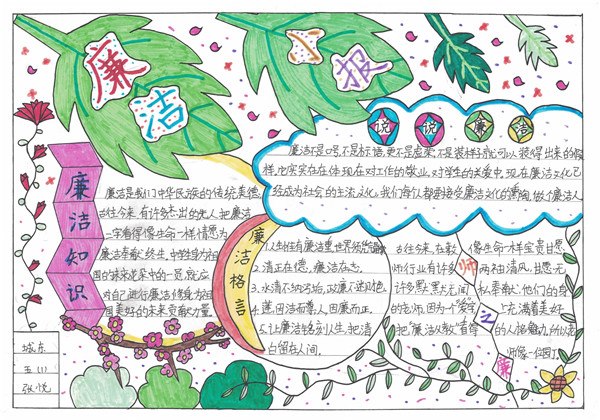 廉洁
小报
说说廉洁
廉洁不是口号,不是标语,更不是虚荣,不是装样子就可以装得出来的假
样,它实实在在体现在对工作的敬业,对学生的关爱中,现在廉洁文化已
经成为社会的主流文化,我们每人都要接受廉洁文化的熏陶,做个廉洁人
廉洁知识
廉洁是我们中华民族的传统美德
古往今来,有许多杰出的先人把廉洁
一字看得像生命一样
国的未来花朵中的一员,就应
对自己进行廉洁修身为祖
国美好的未来贡献力量
廉洁格言
2.清正在德,廉洁在志。
3.水清不纳污垢,政廉不进奸他
4.莲因洁而尊,人因廉而正。
5.让廉洁铭刻人生,把清
白留在人间。
师之廉
古往今来,在教
师行业有许多
许多默默无闻
的老师,因为一个"爱"字
把"廉洁从教"看得
像生命一样宝贵,甘愿
两袖清风,甘愿无
私奉献,他们的身
上充满着美好
的人格魅力,所以老
师像一但园丁
城东
五(1)
张悦